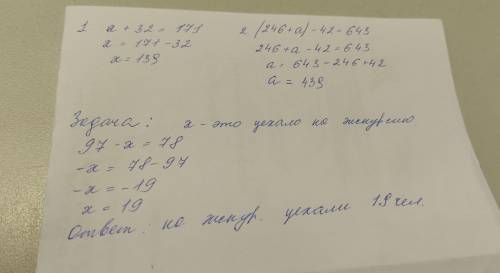 1 x + 32 = 171
x = 171 - 32
x = 139
2 (246+a) - 42 = 643
246+a - 42 = 643
a = 643 - 246 + 42
a = 439
Задача: x - это уехало на экскурсию.
97 - x = 78
-x = 78 - 97
-x = -19
x = 19
Ответ: на экскур. уехали 19 чел.